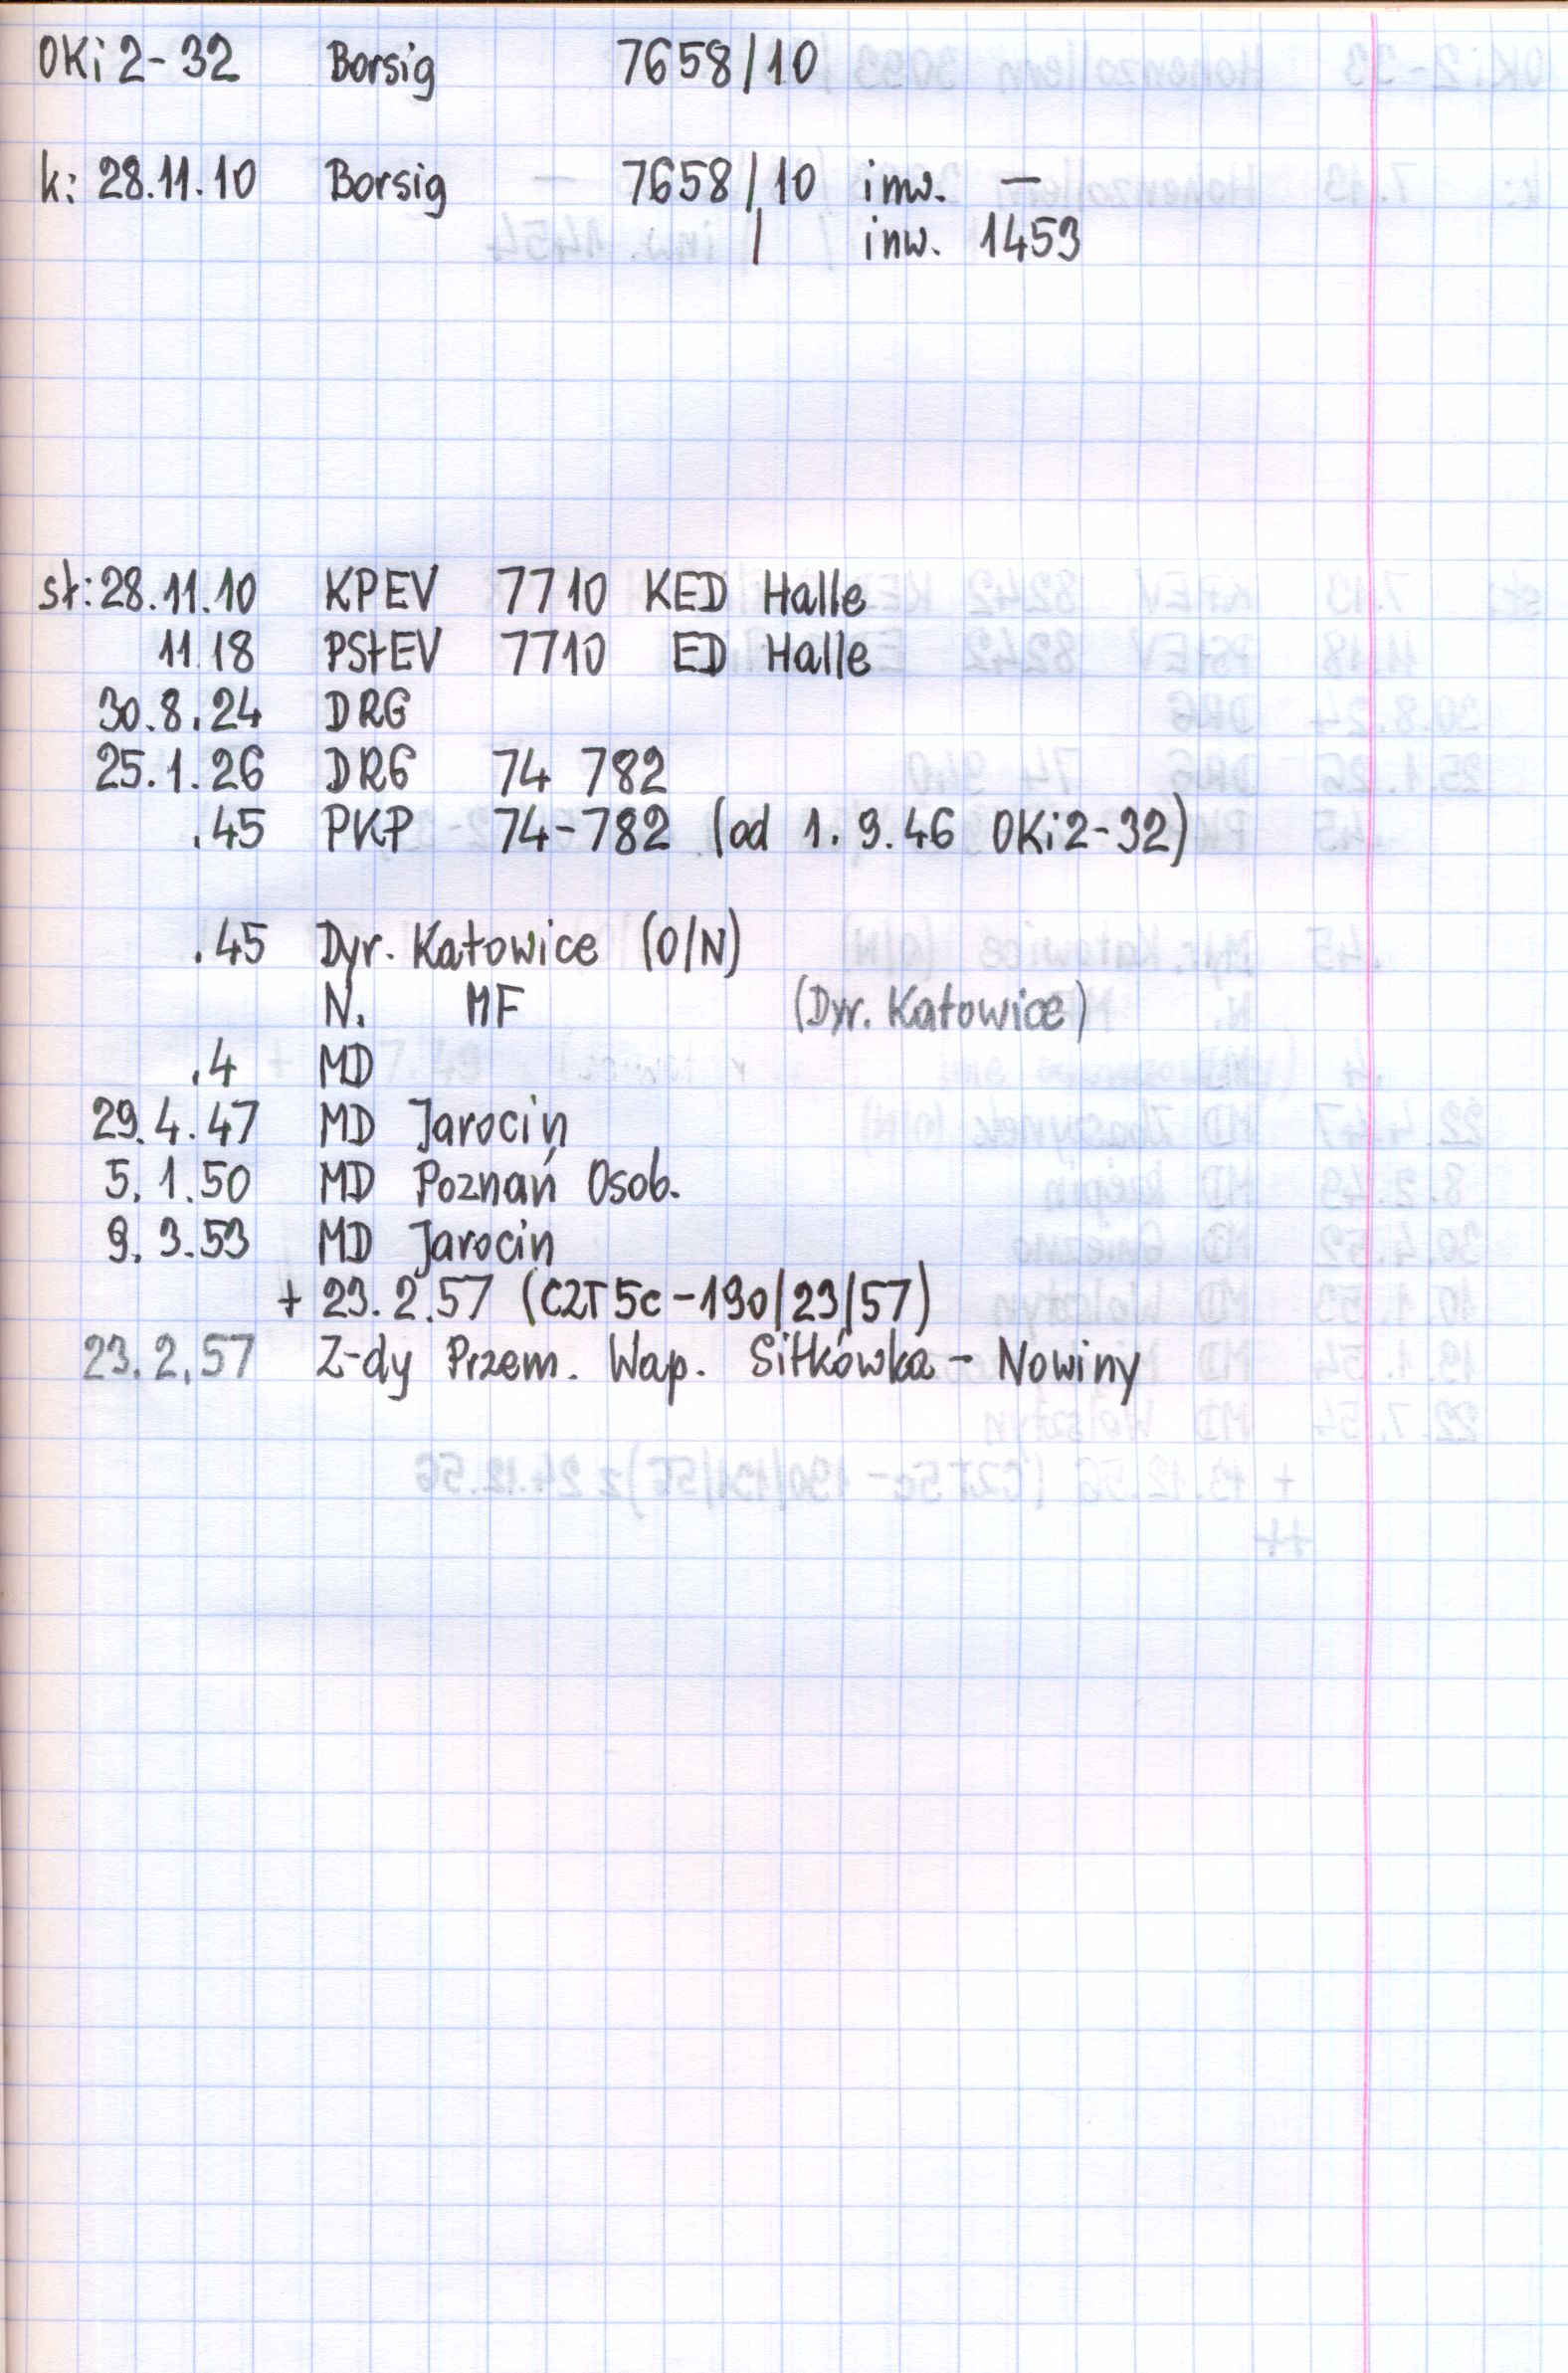 OKi2-32 Borsig 7658/10
k: 28.11.10 Borsig 7658/10 inw. —
/ inw. 1453
st: 28.11.10 KPEV 7710 KED Halle
11.18 PStEV 7710 ED Halle
30.8.24 DRG
25.1.26 DRG 74 782
.45 PKP 74-782 (od 1.9.46 OKi2-32)
.45 Dyr. Katowice (O/N)
N. MF (Dyr. Katowice)
.4 MD
29.4.47 MD Jarocin
5.1.50 MD Poznań Osob.
9.3.53 MD Jarocin
+ 23.2.57 (CZT5c-190/23/57)
23.2.57 Z-dy Przem. Wap. Sitkówka - Nowiny